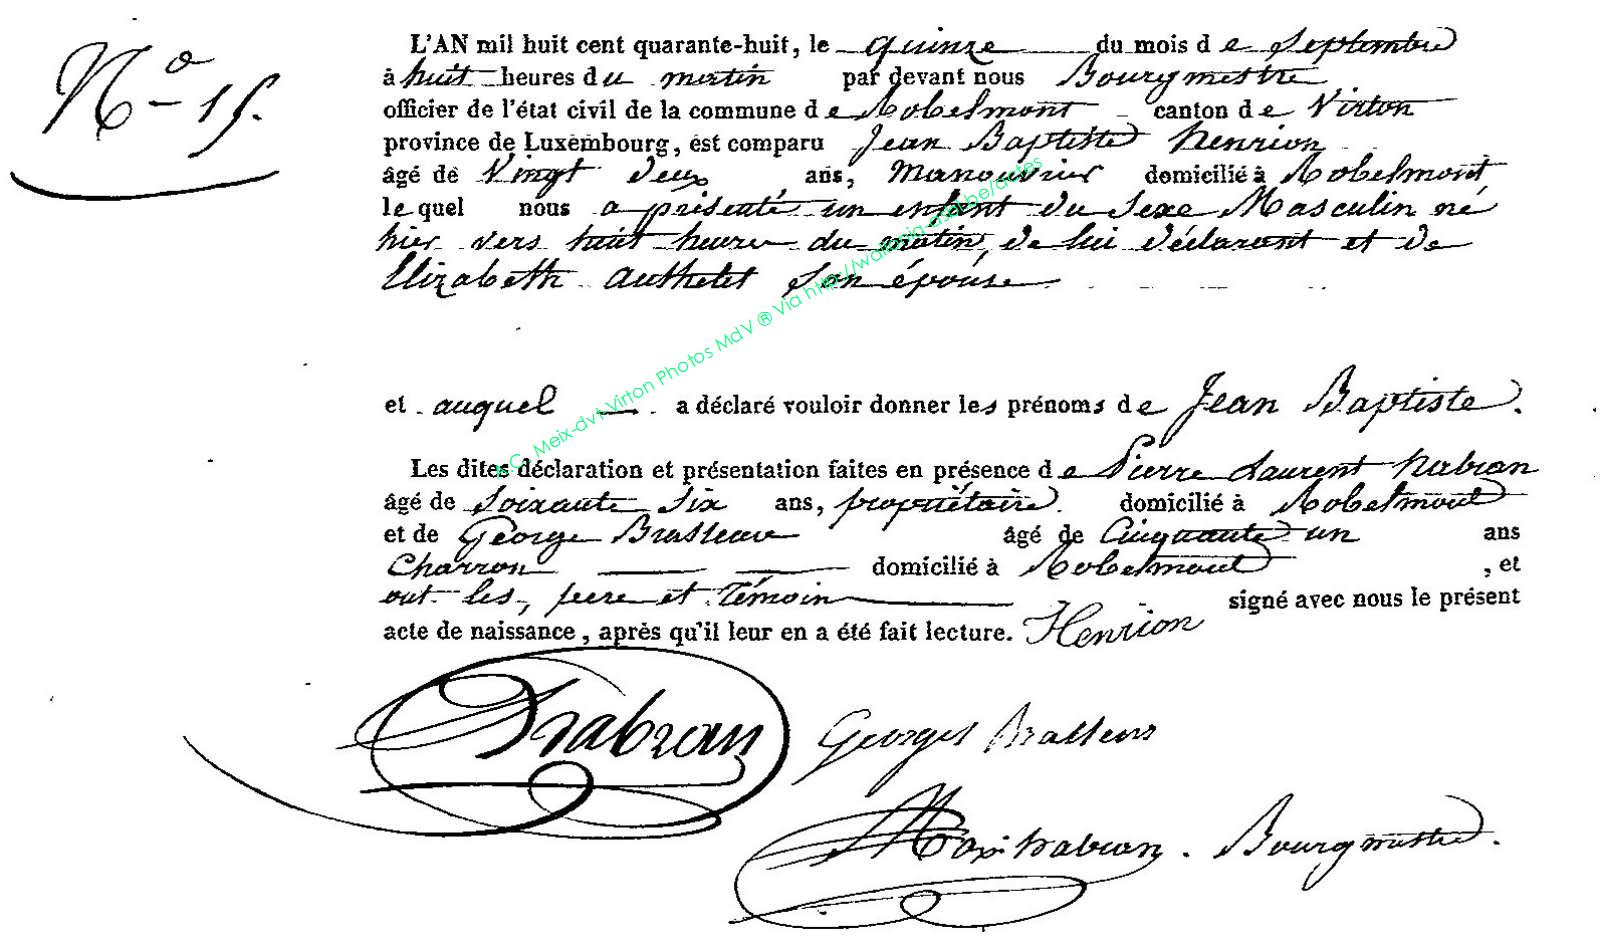 N° 15.
L'AN mil huit cent quarante-huit, le quinze du mois de Septembre
à huit heures du matin par devant nous Bourgmestre
officier de l'état civil de la commune de Robelmont canton de Virton
province de Luxembourg, est comparu Jean Baptiste henrion
âgé de Vingt deux ans, Manouvrier domicilié à Robelmont
le quel nous a présenté un enfant du Sexe Masculin né
hier vers huit heures du matin, de lui déclarant et de
Elizabeth authelet son épouse
et auquel a déclaré vouloir donner les prénoms de Jean Baptiste.
Les dites déclaration et présentation faites en présence de Pierre Laurent habran
âgé de Soixante Six ans, propriétaire domicilié à Robelmont
et de George Brasseur âgé de Cinquante un ans
Charron domicilié à Robelmont , et
ont les, pere et Témoin signé avec nous le présent
acte de naissance, après qu'il leur en a été fait lecture. Henrion
habran
Georges Brasseur
habran. Bourgmestre.
A.C. Meix-dvt-Virton Photos MdV ® Via http://wallonia-asbl.be/actes